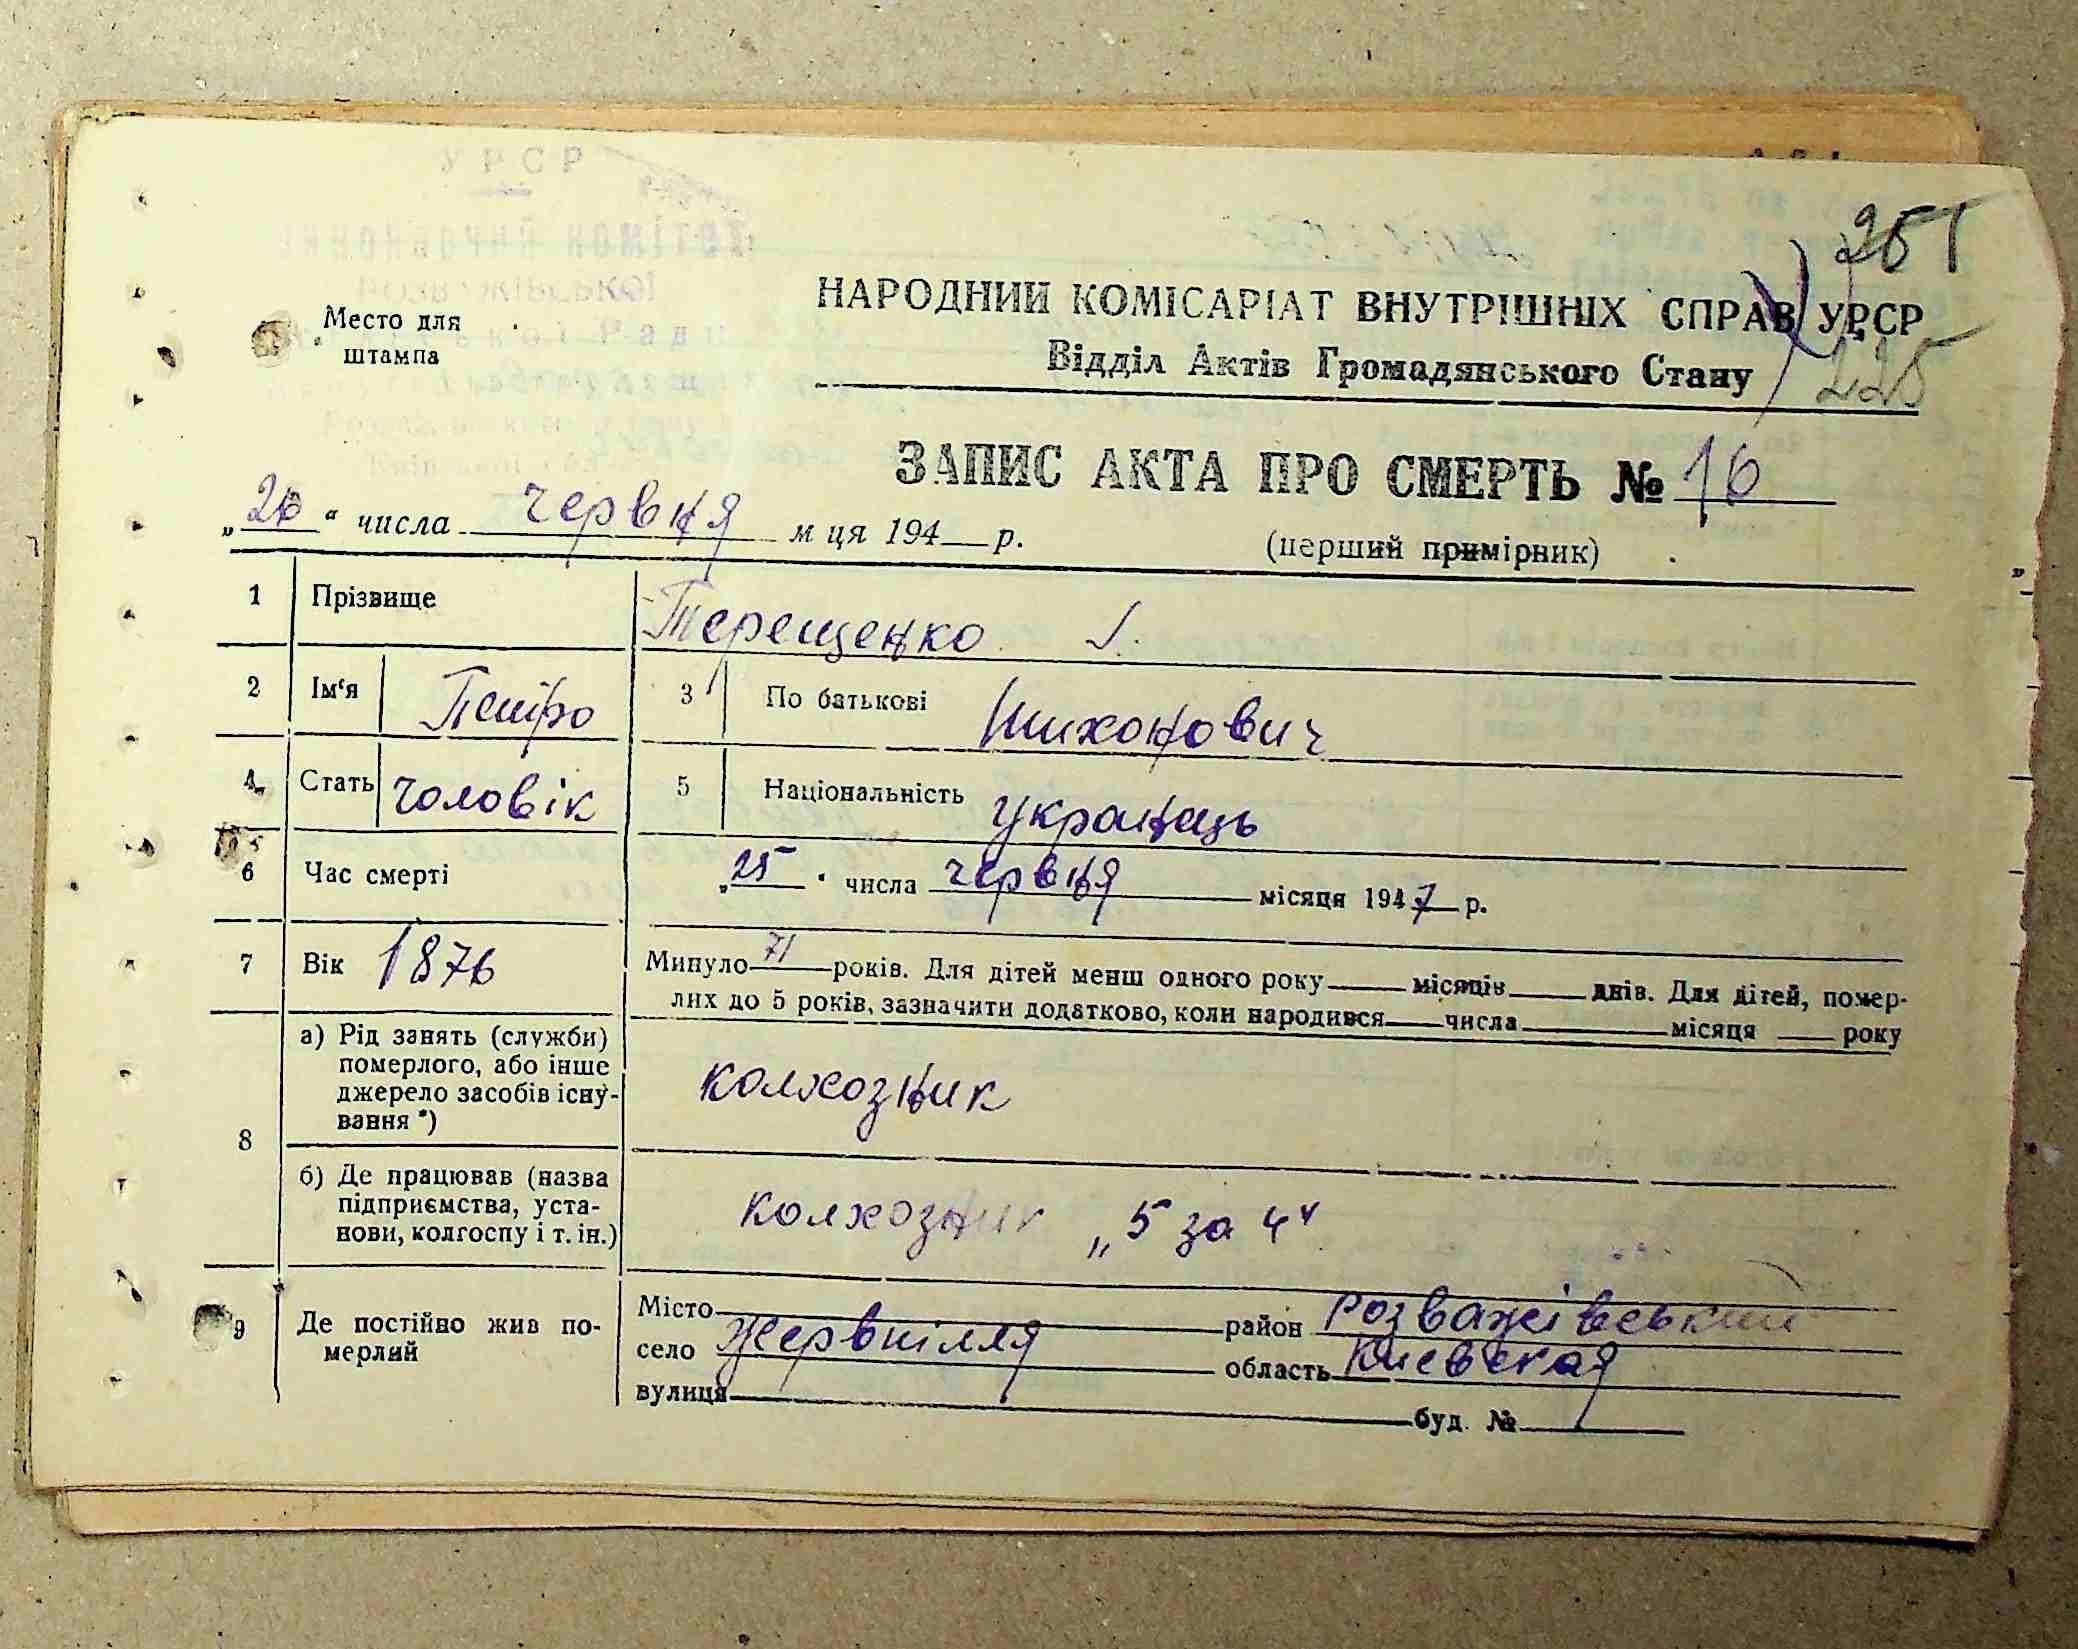 251
Место для
штампа
НАРОДНИЙ КОМІСАРІАТ ВНУТРІШНІХ СПРАВ УРСР
Відділ Актів Громадянського Стану
225
ЗАПИС АКТА ПРО СМЕРТЬ № 16
„26“ числа червня м ця 194 р.
(перший примірник)
1 Прізвище Терещенко
2 Ім‘я Петро 3 По батькові Тихонович
4 Стать чоловік 5 Національність українець
6 Час смерті „25“ числа червня місяця 1947 р.
7 Вік 1876 Минуло 71 років. Для дітей менш одного року місяців днів. Для дітей, помер-
лих до 5 років, зазначити додатково, коли народився числа місяця року
8 а) Рід занять (служби)
померлого, або інше
джерело засобів існу-
вання *)
колхозник
б) Де працював (назва
підприємства, уста-
нови, колгоспу і т. ін.)
колхозник „5 за 4“
9 Де постійно жив по-
мерлий
Місто район Розважівський
село Жервпілля область Киевская
вулиця буд. №